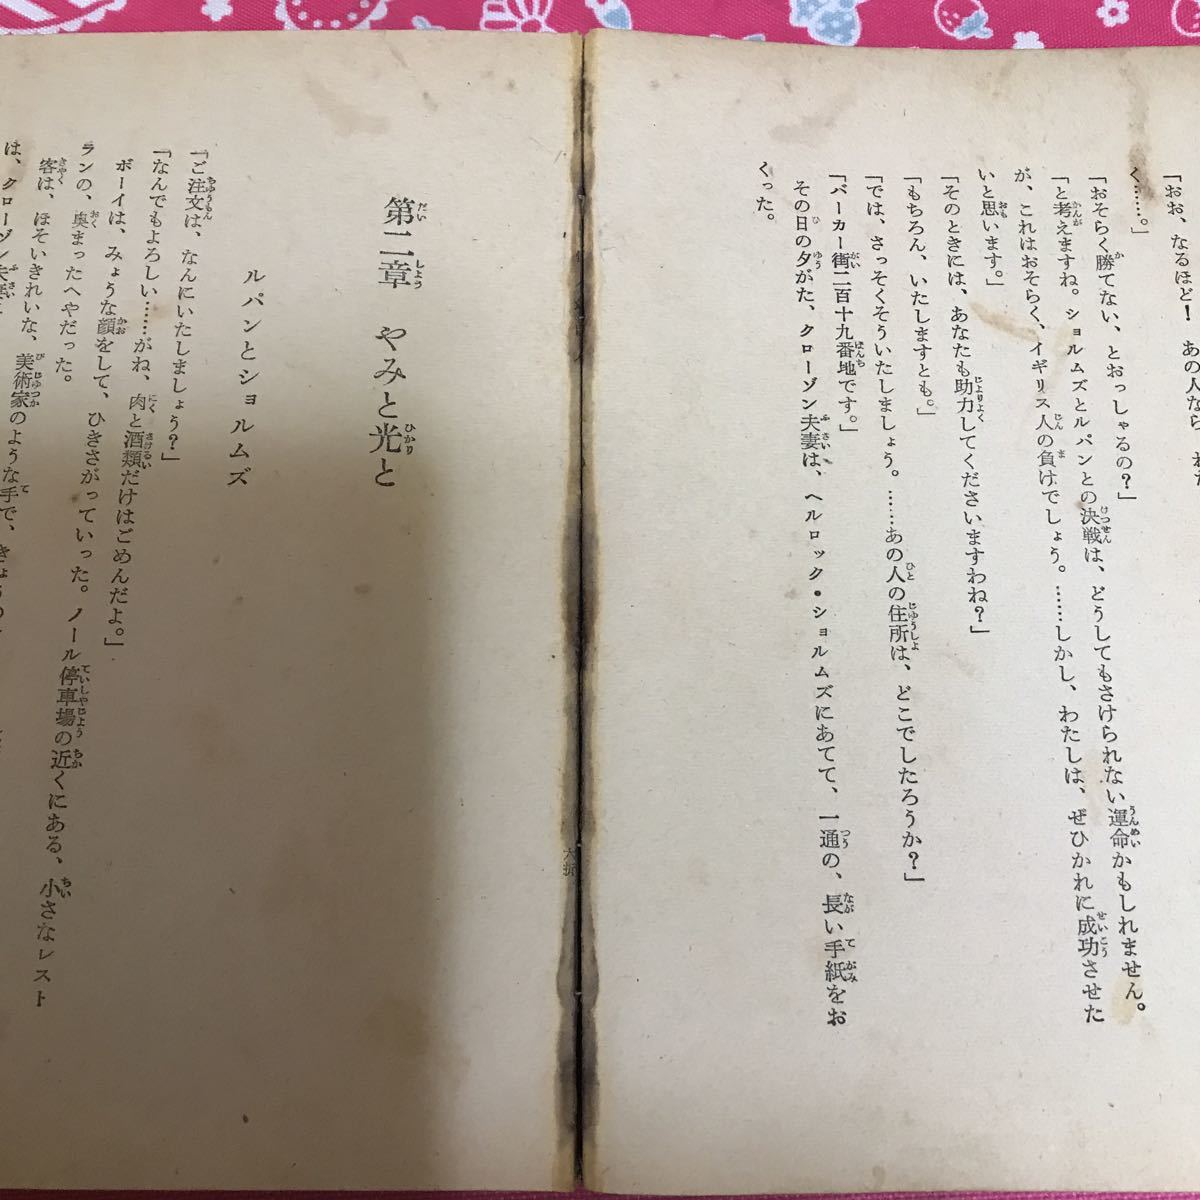 「おお、なるほど！　あの人なら
く……。」
「おそらく勝てない、とおっしゃるの？」
「と考えますね。ショルムズとルパンとの決戦は、どうしてもさけられない運命かもしれません。
が、これはおそらく、イギリス人の負けでしょう。……しかし、わたしは、ぜひかれに成功させた
いと思います。」
「そのときには、あなたも助力してくださいますわね？」
「もちろん、いたしますとも。」
「では、さっそくそういたしましょう。……あの人の住所は、どこでしたろうか？」
「バーカー街二百十九番地です。」
その日の夕がた、クローゾン夫妻は、ヘルロック・ショルムズにあてて、一通の、長い手紙をお
くった。
第二章　やみと光と
ルパンとショルムズ
「ご注文は、なんにいたしましょう？」
「なんでもよろしい……がね、肉と酒類だけはごめんだよ。」
ボーイは、みょうな顔をして、ひきさがっていった。ノール停車場の近くにある、小さなレスト
ランの、奥まったへやだった。
客は、ほそいきれいな、美術家のような手で、きょうの
は、クローゾン夫妻
六折